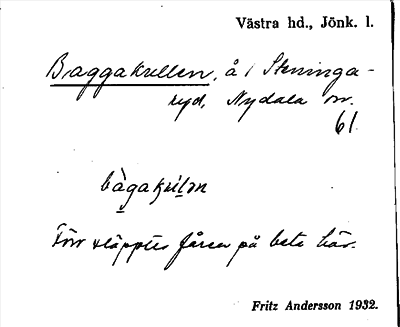 Västra hd., Jönk. l.
Baggakullen, å i Steninga-
ryd, Nydala sn.
61.
Förr släpptes fåren på bete här.
Fritz Andersson 1932.